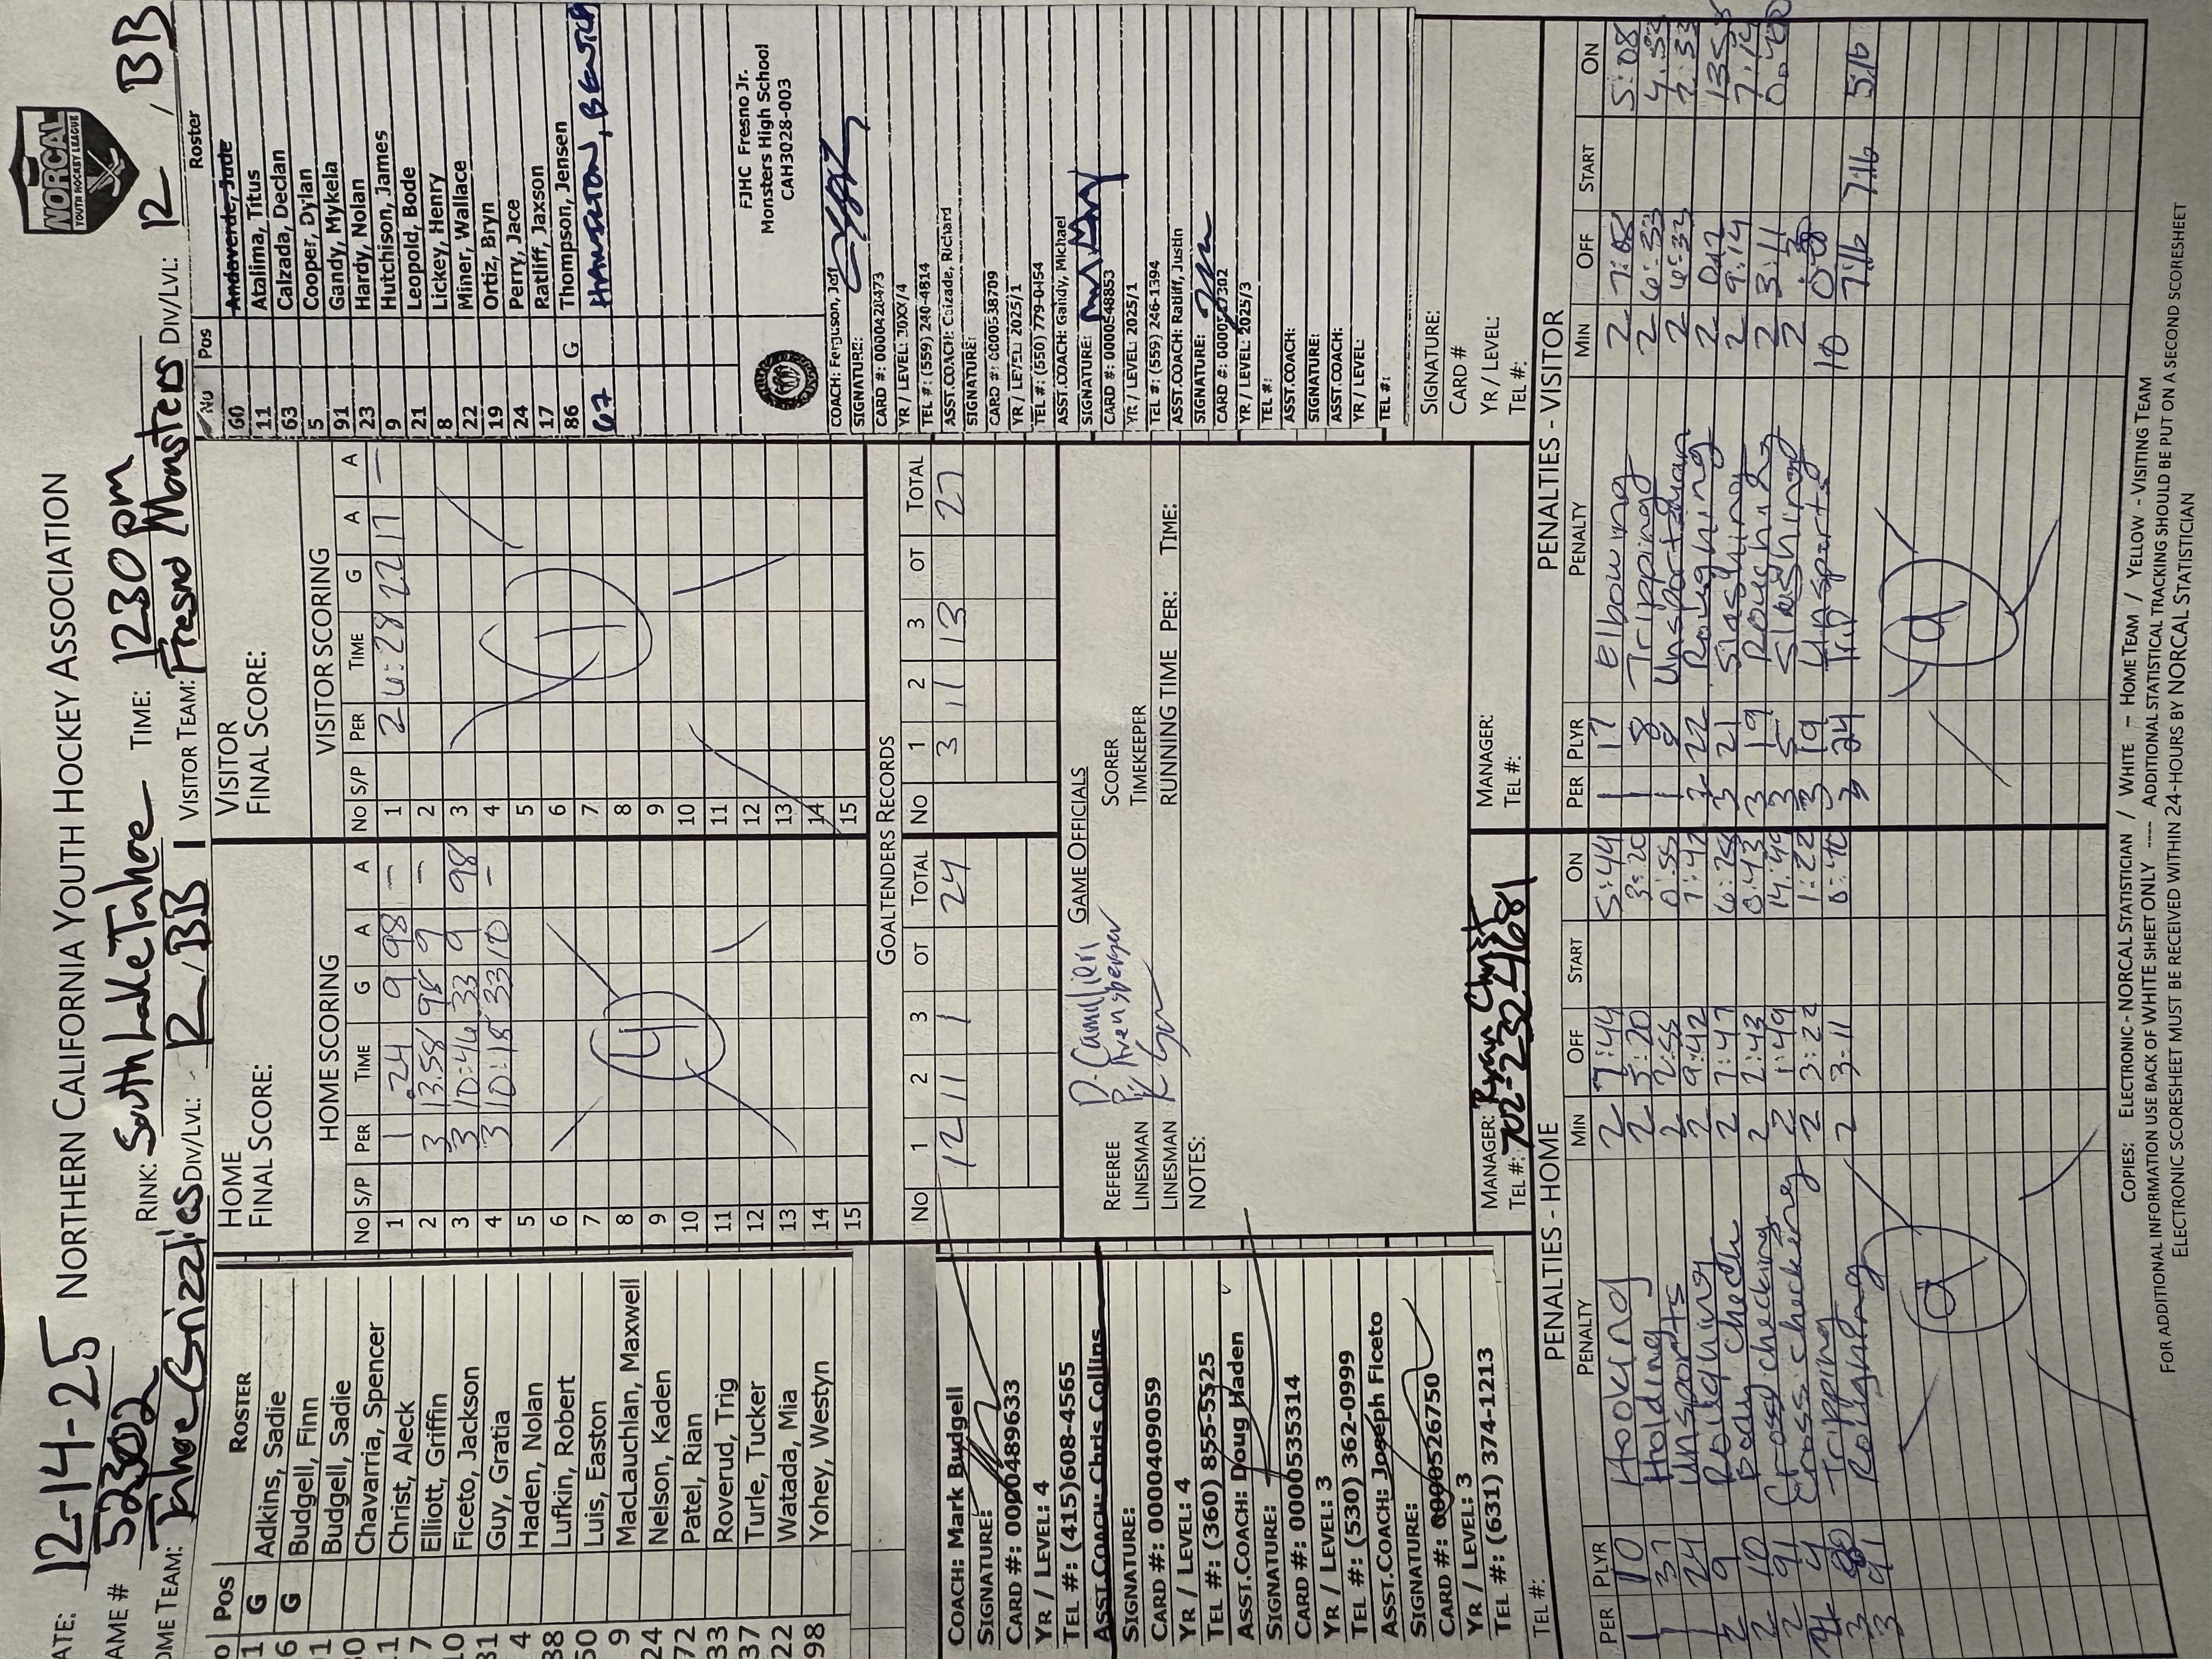 12-14-25 NORTHERN CALIFORNIA YOUTH HOCKEY ASSOCIATION
ATE:
AME # 52302 RINK: South Lake Tahoe TIME: 1230pm
OME TEAM: Tahoe Grizzlies DIV/LVL: 12, BB VISITOR TEAM: Fresno Monsters DIV/LVL: 12, BB
NORCAL
YOUTH HOCKEY LEAGUE
o Pos ROSTER
1 G Adkins, Sadie
6 G Budgell, Finn
01 Budgell, Sadie
80 Chavarria, Spencer
11 Christ, Aleck
7 Elliott, Griffin
10 Ficeto, Jackson
81 Guy, Gratia
4 Haden, Nolan
88 Lufkin, Robert
50 Luis, Easton
9 MacLauchlan, Maxwell
24 Nelson, Kaden
72 Patel, Rian
33 Roverud, Trig
37 Turle, Tucker
22 Watada, Mia
98 Yohey, Westyn
COACH: Mark Budgell
SIGNATURE:
CARD #: 0000489633
YR / LEVEL: 4
TEL #: (415)608-4565
ASST.COACH: Chris Collins
SIGNATURE:
CARD #: 0000409059
YR / LEVEL: 4
TEL #: (360) 855-5525
ASST.COACH: Doug Haden
SIGNATURE:
CARD #: 0000535314
YR / LEVEL: 3
TEL #: (530) 362-0999
ASST.COACH: Joseph Ficeto
SIGNATURE:
CARD #: 0000526750
YR / LEVEL: 3
TEL #: (631) 374-1213
TEL #:
HOME
FINAL SCORE:
HOME SCORING
No S/P PER TIME G A A
1 1 :24 9 98 -
2 3 13:58 98 9 -
3 3 10:46 33 9 98
4 3 10:18 33 10 -
5
6
7
8 4
9
10
11
12
13
14
15
VISITOR
FINAL SCORE:
VISITOR SCORING
No S/P PER TIME G A A
1 2 6:28 22 17 -
2
3
4
5
6 1
7
8
9
10
11
12
13
14
15
GOALTENDERS RECORDS
No 1 2 3 OT TOTAL No 1 2 3 OT TOTAL
12 11 1 24 3 11 13 27
GAME OFFICIALS
REFEREE D. Camillieri SCORER
LINESMAN TIMEKEEPER
LINESMAN RUNNING TIME PER: TIME:
NOTES:
MANAGER: Ryan Christ
TEL #: 702-232-4681
MANAGER:
TEL #:
No Pos Roster
60 Andaverde, Jude
11 Atalima, Titus
63 Calzada, Declan
5 Cooper, Dylan
91 Gandy, Mykela
23 Hardy, Nolan
9 Hutchison, James
21 Leopold, Bode
8 Lickey, Henry
22 Miner, Wallace
19 Ortiz, Bryn
24 Perry, Jace
17 Ratliff, Jaxson
86 G Thompson, Jensen
67
FJHC Fresno Jr.
Monsters High School
CAH3028-003
COACH: Ferguson, Jeff
SIGNATURE:
CARD #: 0000420473
TEL #: (559) 240-4814
ASST.COACH: Calzada, Richard
SIGNATURE:
CARD #: 0000538709
YR / LEVEL: 2025/1
TEL #: (550) 779-0454
ASST.COACH: Gandy, Michael
SIGNATURE:
CARD #: 0000548853
YR / LEVEL: 2025/1
TEL #: (559) 246-1394
ASST.COACH: Ratliff, Justin
SIGNATURE:
YR / LEVEL: 2025/3
TEL #:
ASST.COACH:
SIGNATURE:
ASST.COACH:
YR / LEVEL:
TEL #:
SIGNATURE:
CARD #
YR / LEVEL:
TEL #:
PENALTIES - HOME
PER PLYR PENALTY MIN OFF START ON
1 10 Hooking 2 7:44 5:44
1 37 Holding 2 5:20 3:20
1 24 Unsports 2 2:55 0:55
2 9 Roughing 2 9:42 7:42
2 10 Body check 2
2 91 Cross checking 2 2:43 0:43
4 Cross checking 2 1:49 14:49
3 Tripping 2 3:22 1:22
3 91 Roughing 2 3:11
9
PENALTIES - VISITOR
PER PLYR PENALTY MIN OFF START ON
1 17 Elbowing 2 7:08 5:08
1 8 Tripping 2 6:33 4:33
1 8 Unsportsman 2
22 Roughing 2
3 21 Slashing 2 9:14 7:14
3 19 Roughing 2 3:11
3 5 Slashing 2
3 19 Unsports 10 7:16 7:16 5:16
3 24
9
COPIES: ELECTRONIC - NORCAL STATISTICIAN / WHITE – HOME TEAM / YELLOW - VISITING TEAM
FOR ADDITIONAL INFORMATION USE BACK OF WHITE SHEET ONLY ---- ADDITIONAL STATISTICAL TRACKING SHOULD BE PUT ON A SECOND SCORESHEET
ELECTRONIC SCORESHEET MUST BE RECEIVED WITHIN 24-HOURS BY NORCAL STATISTICIAN